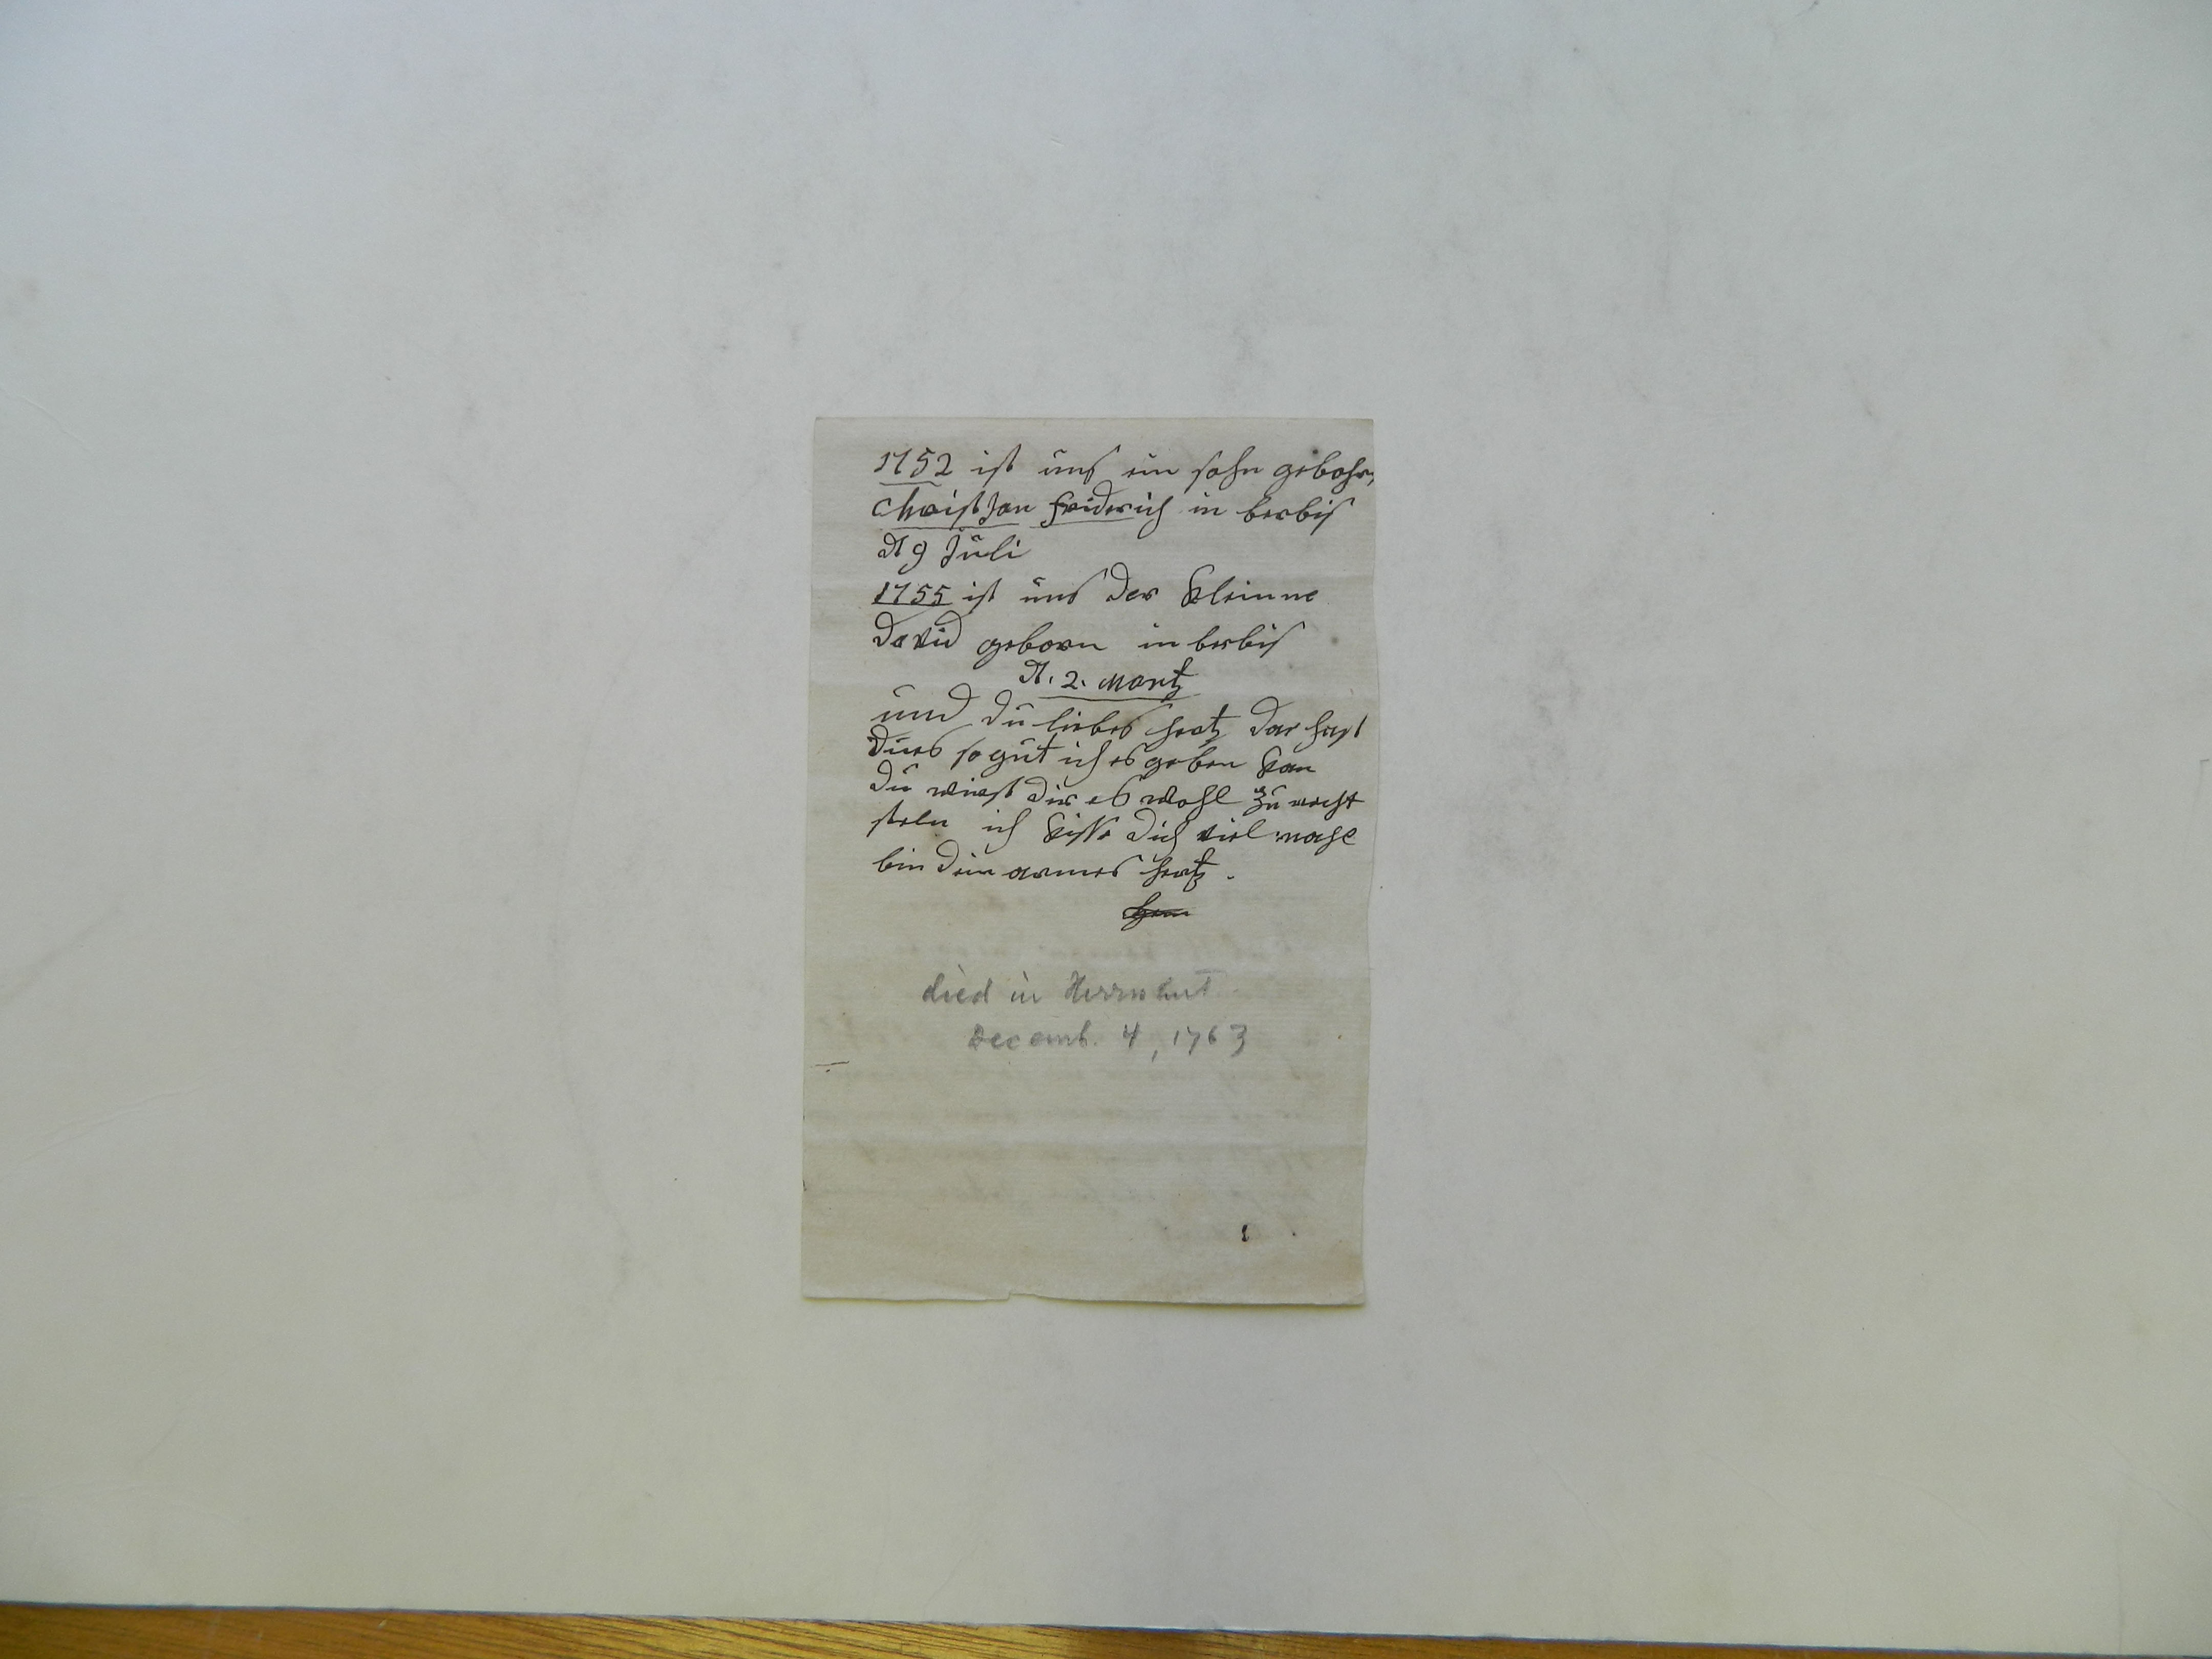 1752 ist uns ein sohn gebohr,
ChristJan fridrich in berbis
d 9 Juli
1755 ist uns der kleinne
david geborn in berbis
d. 2. Martz
und du liebes hertz dar hast
dues so gut ich es geben kan
du wirst dir es wohl zu recht
steln ich kisse dich viel mahl
bin dein armes hertz.
died in Herrnhut
Decemb. 4, 1763